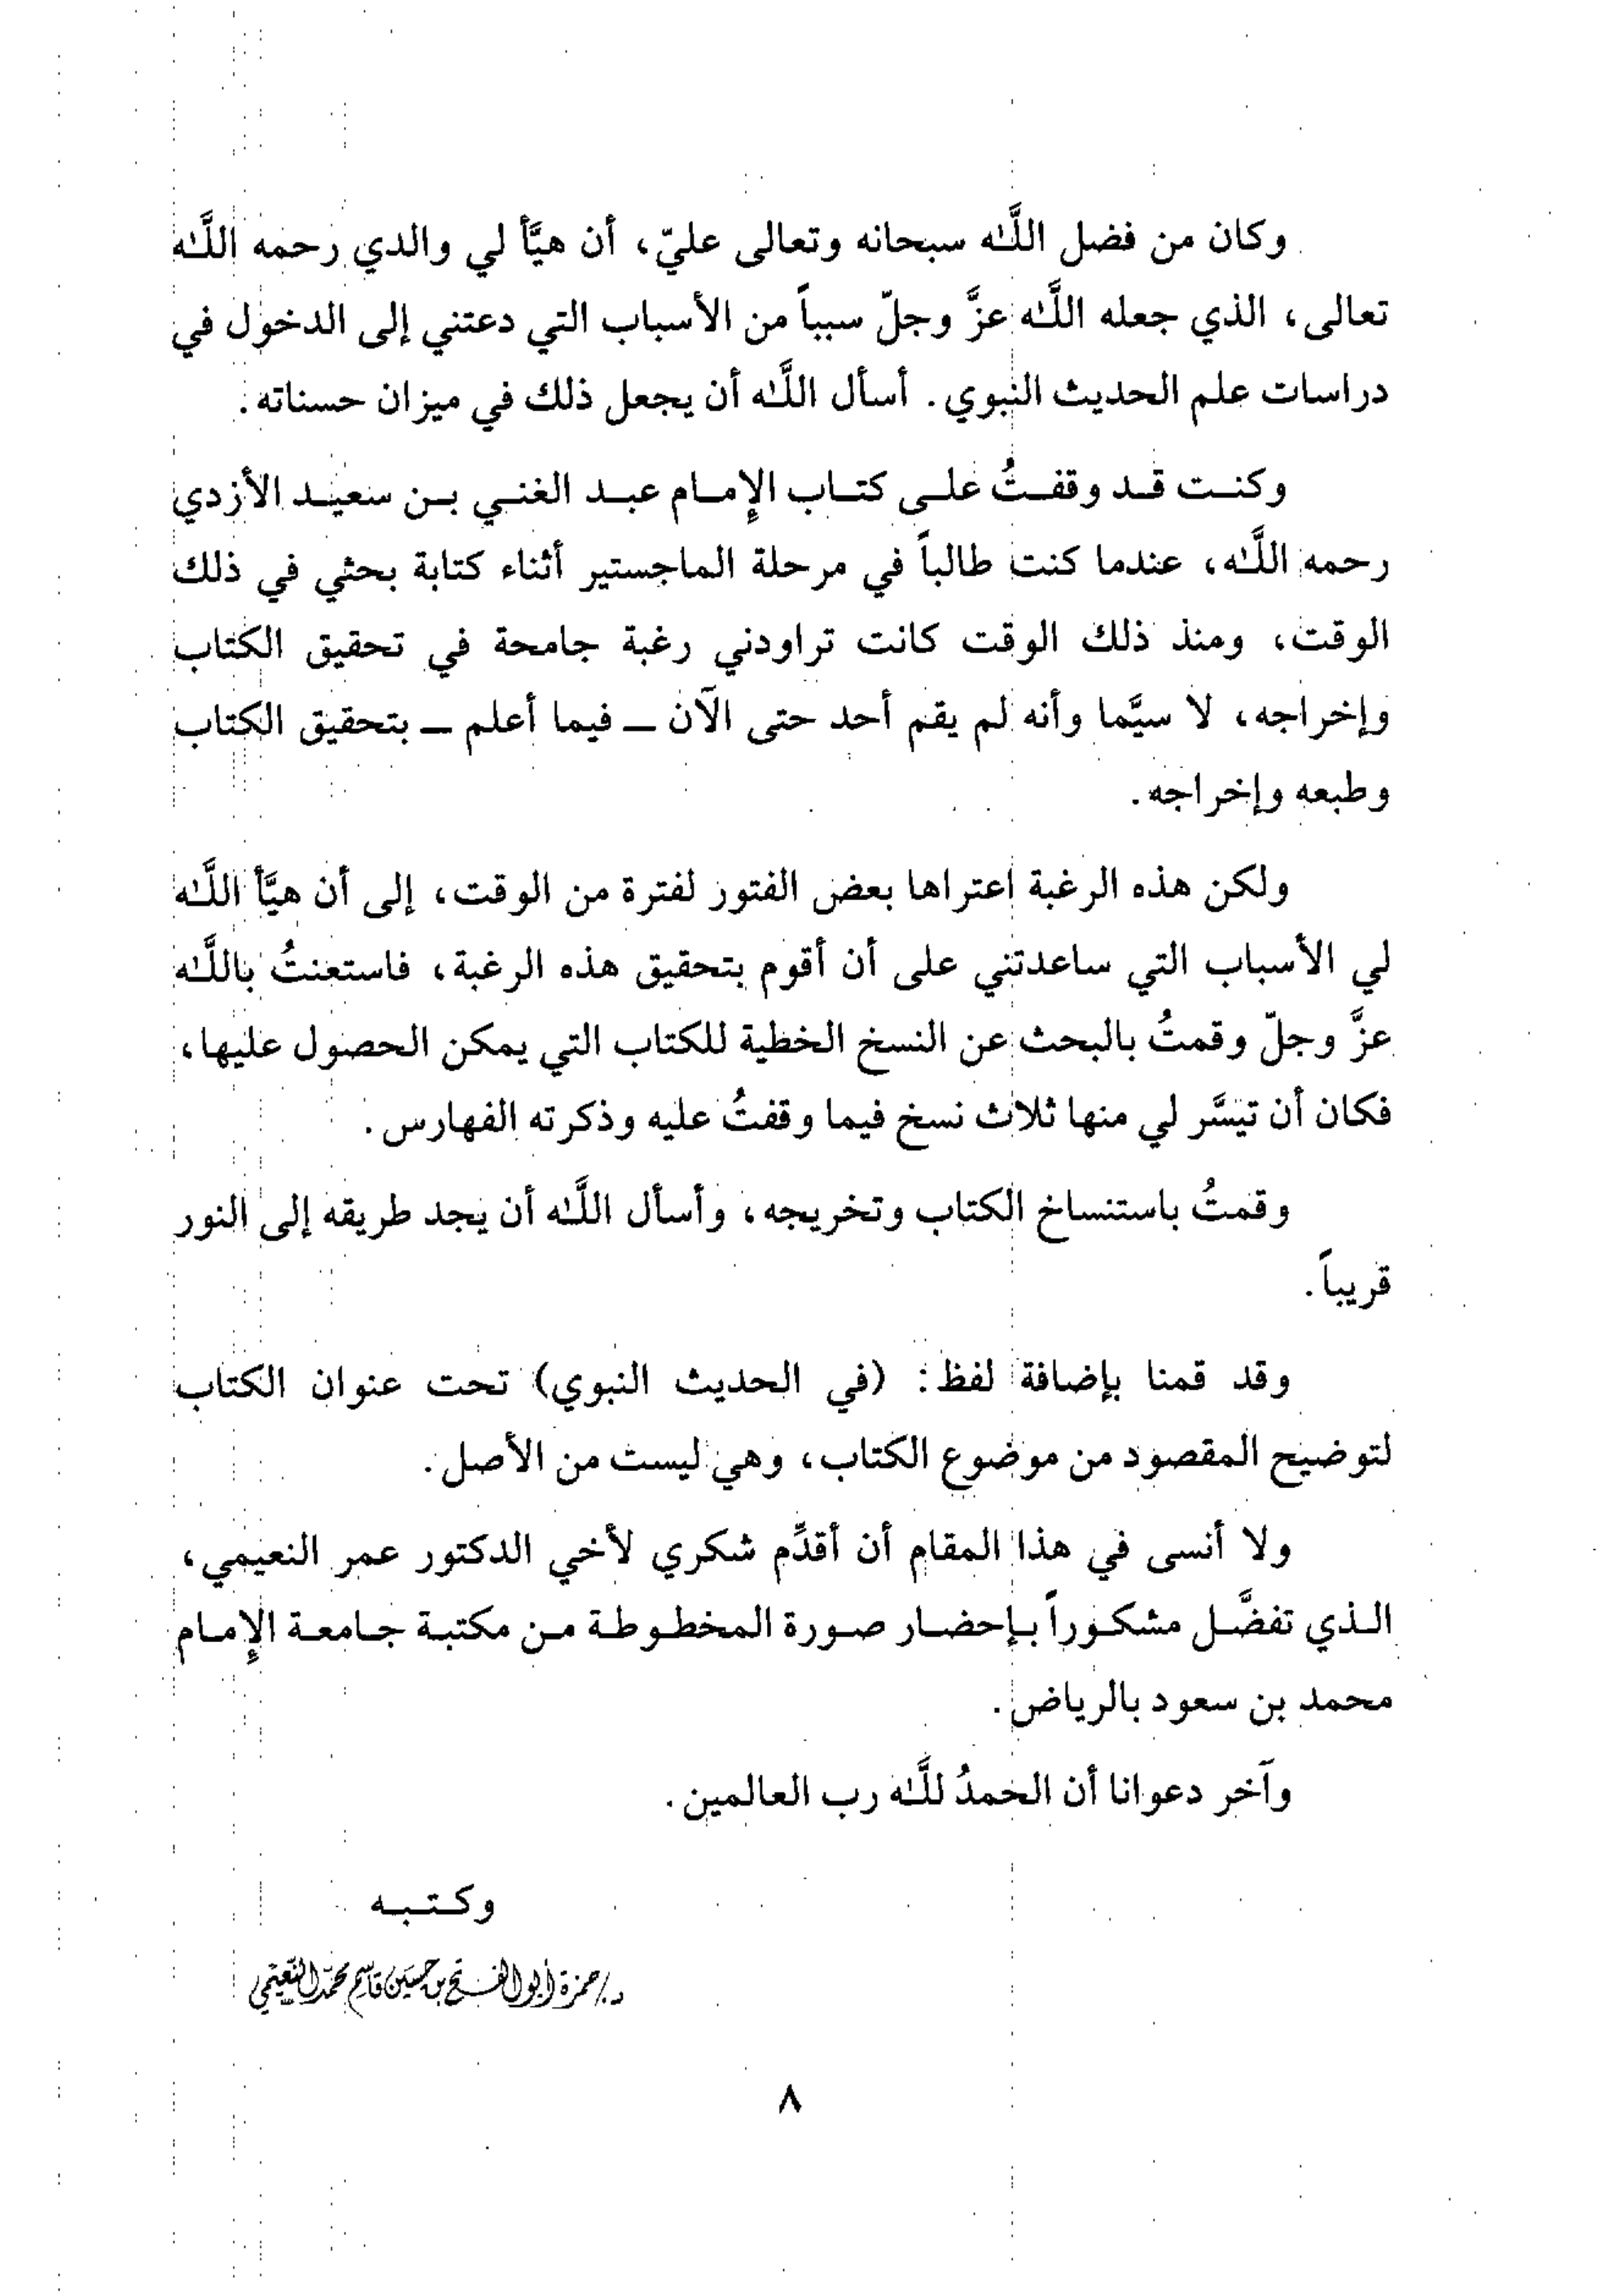 وكان من فضل اللَّه سبحانه وتعالى عليّ، أن هيَّأ لي والدي رحمه اللَّه
تعالى، الذي جعله اللَّه عزَّ وجلّ سبباً من الأسباب التي دعتني إلى الدخول في
دراسات علم الحديث النبوي. أسأل اللَّه أن يجعل ذلك في ميزان حسناته.
وكنت قد وقفتُ على كتاب الإمام عبد الغني بن سعيد الأزدي
رحمه اللَّه، عندما كنت طالباً في مرحلة الماجستير أثناء كتابة بحثي في ذلك
الوقت، ومنذ ذلك الوقت كانت تراودني رغبة جامحة في تحقيق الكتاب
وإخراجه، لا سيَّما وأنه لم يقم أحد حتى الآن ــ فيما أعلم ــ بتحقيق الكتاب
وطبعه وإخراجه.
ولكن هذه الرغبة اعتراها بعض الفتور لفترة من الوقت، إلى أن هيَّأ اللَّه
لي الأسباب التي ساعدتني على أن أقوم بتحقيق هذه الرغبة، فاستعنتُ باللَّه
عزَّ وجلّ وقمتُ بالبحث عن النسخ الخطية للكتاب التي يمكن الحصول عليها،
فكان أن تيسَّر لي منها ثلاث نسخ فيما وقفتُ عليه وذكرته الفهارس.
وقمتُ باستنساخ الكتاب وتخريجه، وأسأل اللَّه أن يجد طريقه إلى النور
قريباً.
وقد قمنا بإضافة لفظ: (في الحديث النبوي) تحت عنوان الكتاب
لتوضيح المقصود من موضوع الكتاب، وهي ليست من الأصل.
ولا أنسى في هذا المقام أن أقدِّم شكري لأخي الدكتور عمر النعيمي،
الذي تفضَّل مشكوراً بإحضار صورة المخطوطة من مكتبة جامعة الإمام
محمد بن سعود بالرياض.
وآخر دعوانا أن الحمدُ للَّه رب العالمين.
وكتبه
د/حمزة أبو الفتح بن حسين قاسم محمّد النّعيمي
٨